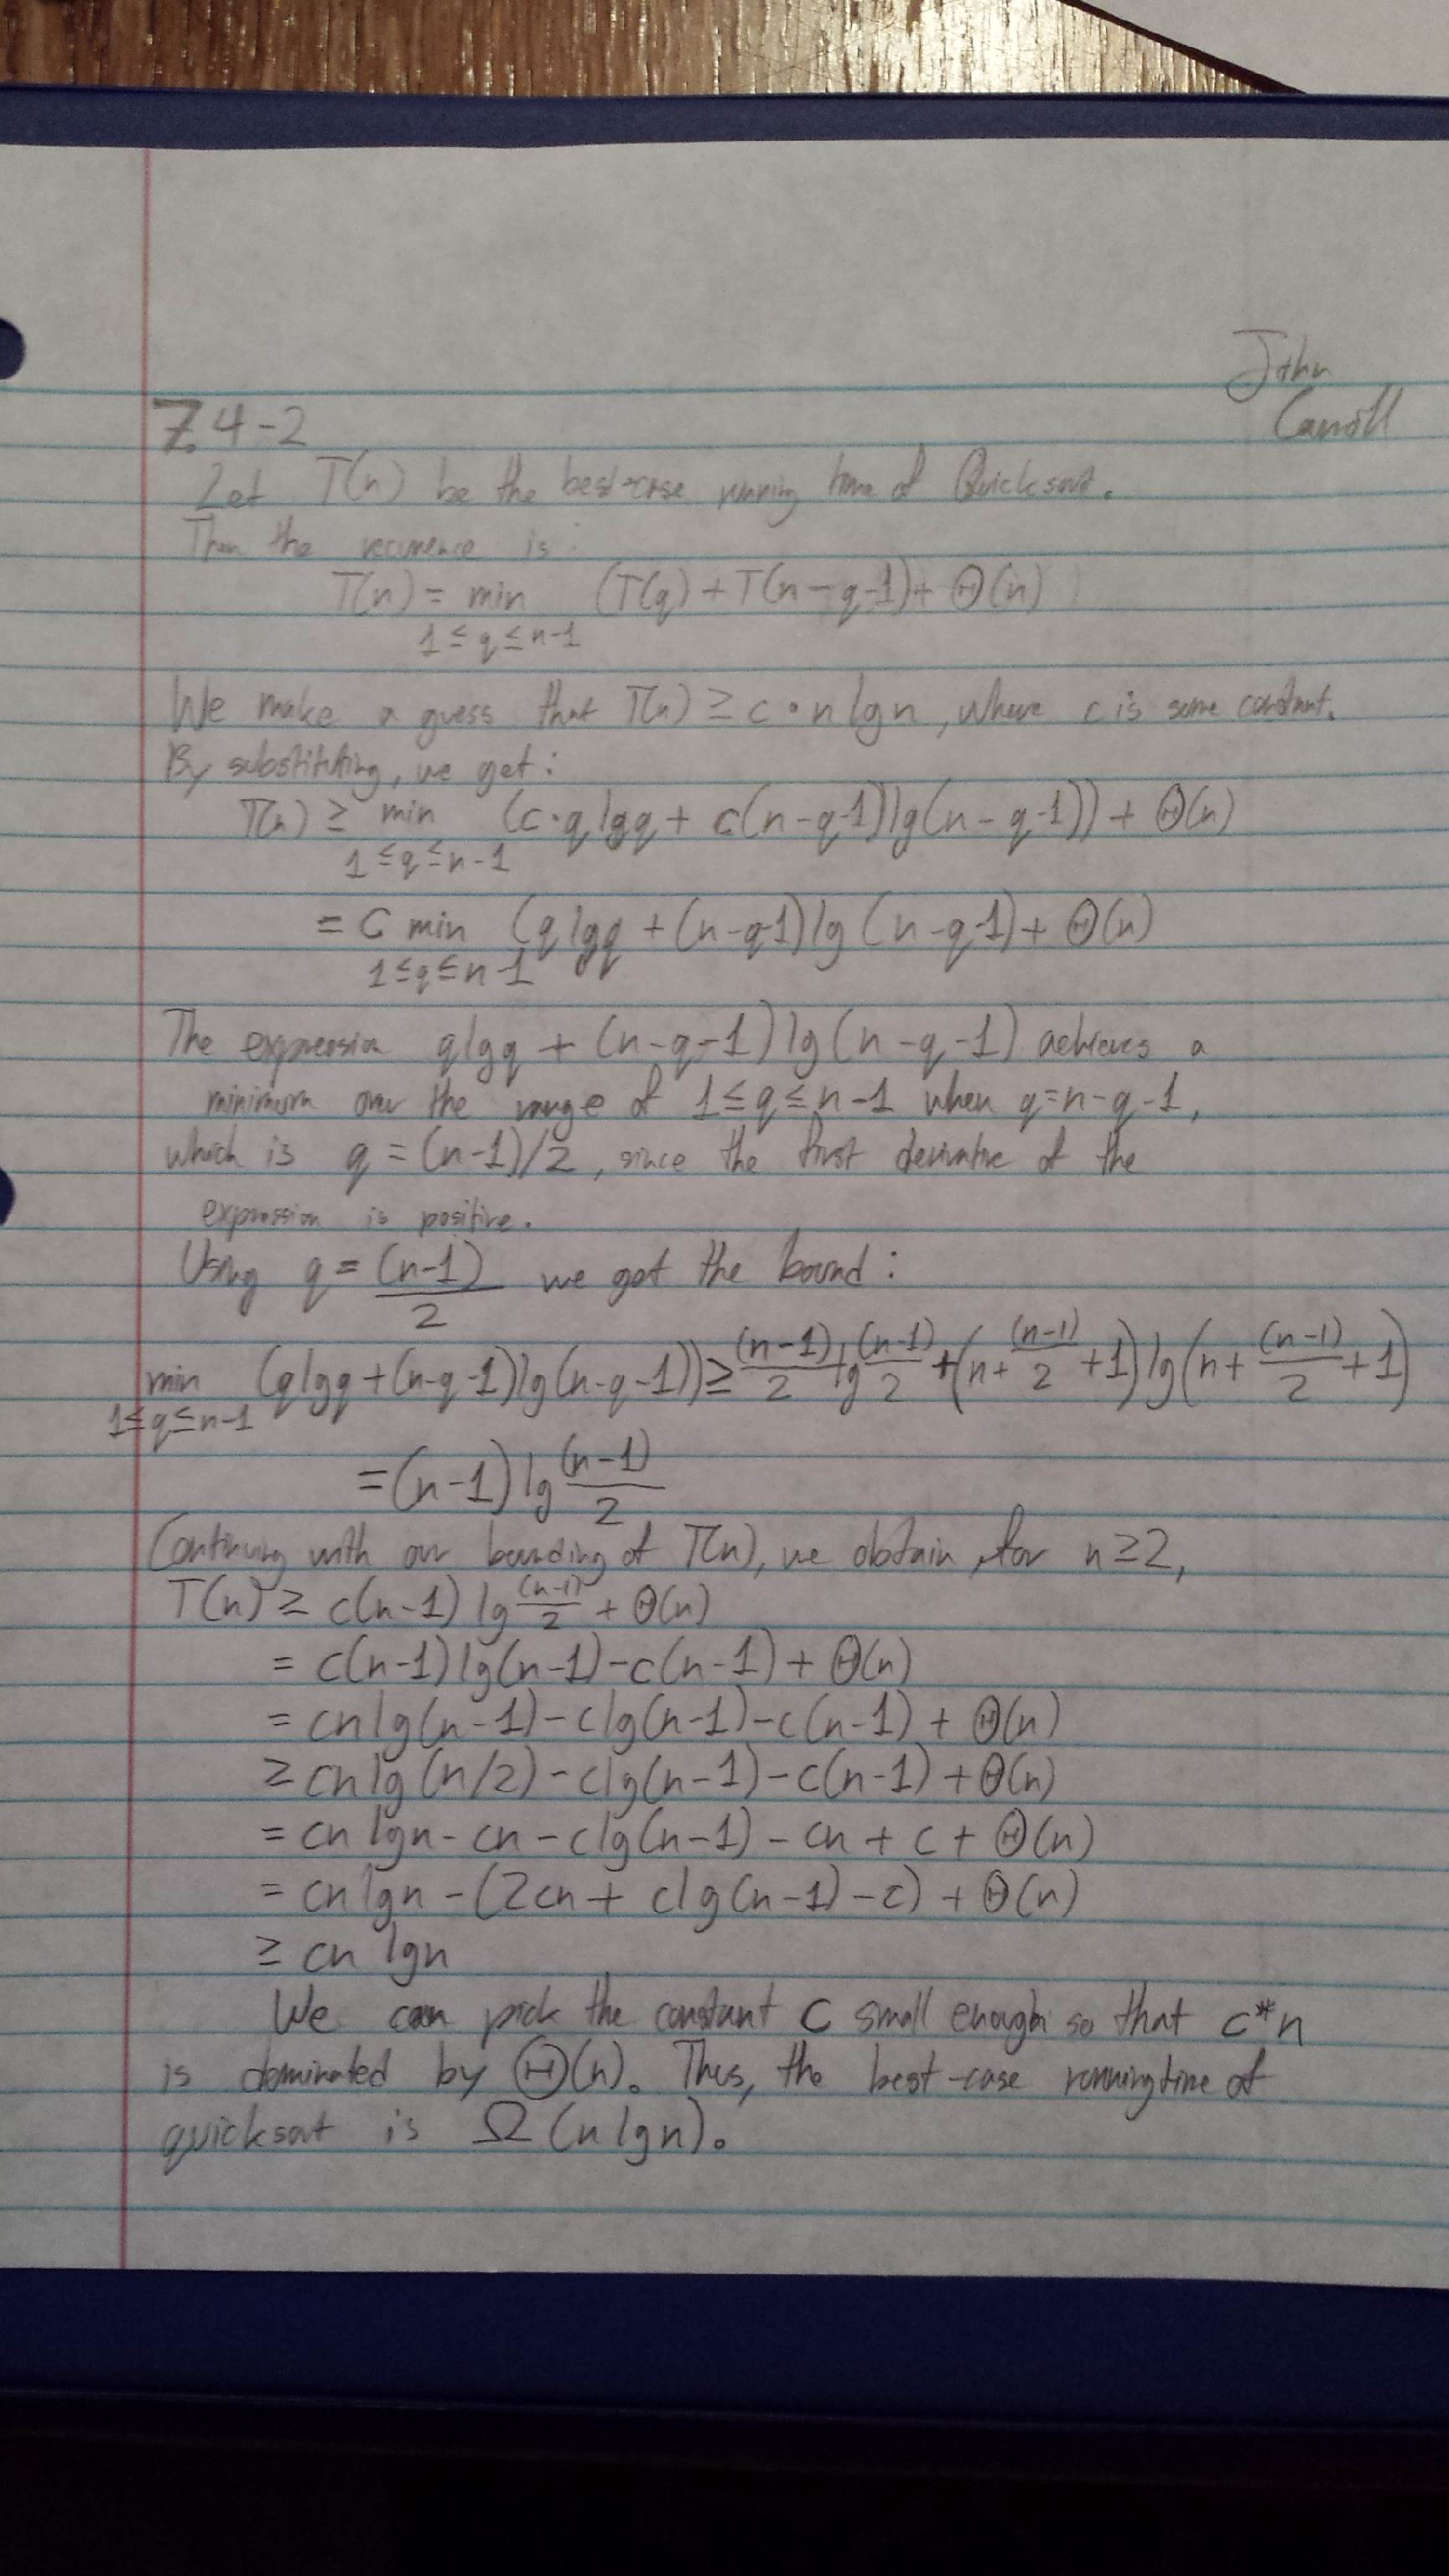 John
Carroll
7.4-2
Let T(n) be the best-case running time of Quicksort.
Then the recurrence is:
T(n) = min (T(q) + T(n-q-1)) + Θ(n)
1 ≤ q ≤ n-1
We make a guess that T(n) ≥ c·n lg n, where c is some constant.
By substituting, we get:
T(n) ≥ min (c·q lg q + c(n-q-1) lg(n-q-1)) + Θ(n)
1 ≤ q ≤ n-1
= c min (q lg q + (n-q-1) lg (n-q-1) + Θ(n)
1 ≤ q ≤ n-1
The expression q lg q + (n-q-1) lg (n-q-1) achieves a
minimum over the range of 1 ≤ q ≤ n-1 when q=n-q-1,
which is q = (n-1)/2, since the first derivative of the
expression is positive.
Using q = (n-1)/2 we get the bound:
min (q lg q + (n-q-1) lg(n-q-1)) ≥ (n-1)/2 lg (n-1)/2 + (n + (n-1)/2 + 1) lg (n + (n-1)/2 + 1)
1 ≤ q ≤ n-1
= (n-1) lg (n-1)/2
Continuing with our bounding of T(n), we obtain, for n ≥ 2,
T(n) ≥ c(n-1) lg (n-1)/2 + Θ(n)
= c(n-1) lg(n-1) - c(n-1) + Θ(n)
= cn lg(n-1) - c lg(n-1) - c(n-1) + Θ(n)
≥ cn lg (n/2) - c lg(n-1) - c(n-1) + Θ(n)
= cn lg n - cn - c lg(n-1) - cn + c + Θ(n)
= cn lg n - (2cn + c lg(n-1) - c) + Θ(n)
≥ cn lg n
We can pick the constant c small enough so that c*n
is dominated by Θ(n). Thus, the best-case running time of
quicksort is Ω(n lg n).